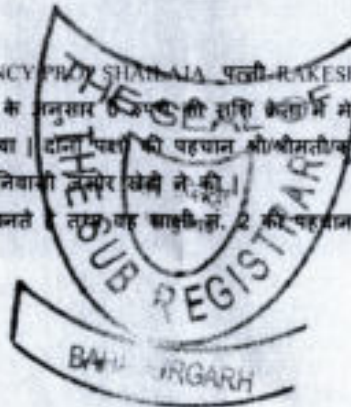 NCY PROP SHAILAJA पत्नी RAKES
के अनुसार 0 रुपये की राशि क्रेता ने मे
वा | दोनों पक्षों की पहचान श्री/श्रीमती/क
निवासी खेडी ने की |
नते है तथा वह साक्षी न. 2 की पहचान
THE SEAL OF
THE SUB REGISTRAR